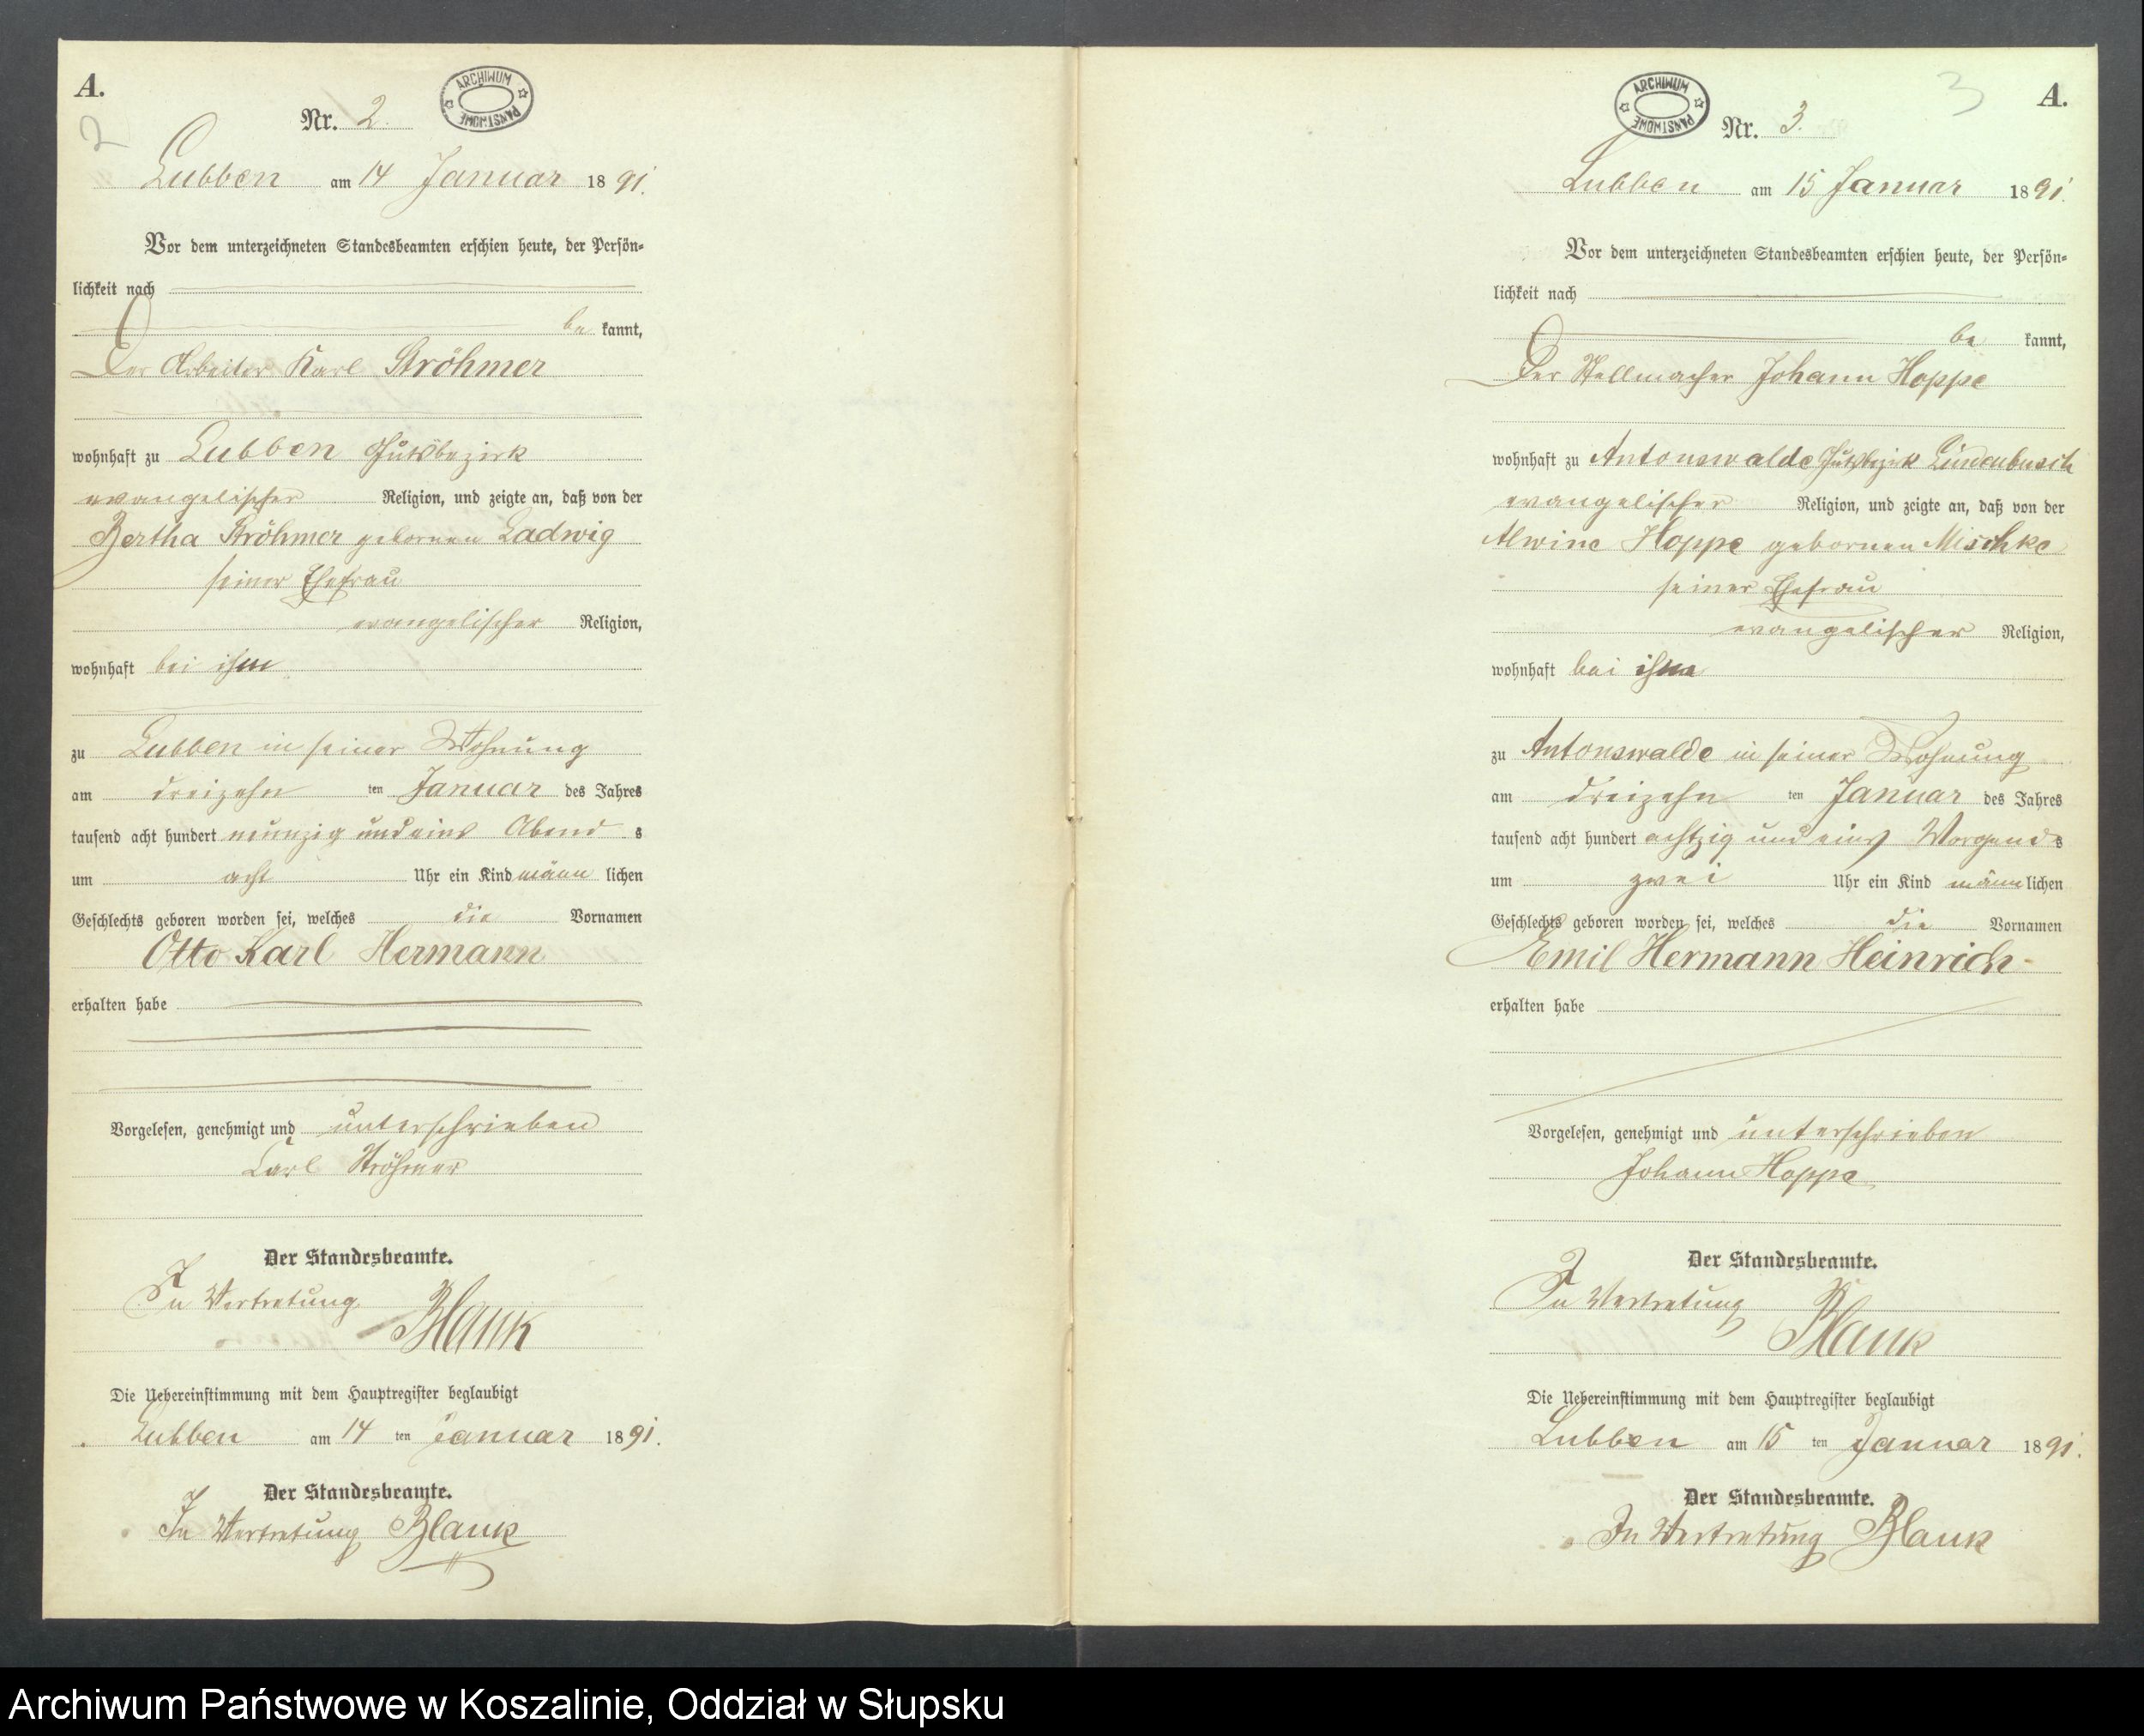 A.
2
Nr. 2.
ARCHIWUM PAŃSTWOWE
Lubben am 14 Januar 1891.
Vor dem unterzeichneten Standesbeamten erschien heute, der Persön-
lichkeit nach
be kannt,
Der Arbeiter Karl Ströhmer
wohnhaft zu Lubben Gutsbezirk
evangelischer Religion, und zeigte an, daß von der
Bertha Ströhmer geborenen Ladwig
seiner Ehefrau
evangelischer Religion,
wohnhaft bei ihm
zu Lubben in seiner Wohnung
am dreizehn ten Januar des Jahres
tausend acht hundert neunzig und eins Abend s
um acht Uhr ein Kind männ lichen
Geschlechts geboren worden sei, welches die Vornamen
Otto Karl Hermann
erhalten habe
Vorgelesen, genehmigt und unterschrieben
Carl Ströhmer
Der Standesbeamte.
In Vertretung
Blank
Die Uebereinstimmung mit dem Hauptregister beglaubigt
Lubben am 14 ten Januar 1891.
Der Standesbeamte.
In Vertretung Blank
3
A.
Nr. 3.
ARCHIWUM PAŃSTWOWE
Lubben am 15 Januar 1891.
Vor dem unterzeichneten Standesbeamten erschien heute, der Persön-
lichkeit nach
be kannt,
Der Stellmacher Johann Hoppe
wohnhaft zu Antonswalde Gutsbezirk Lindenbusch
evangelischer Religion, und zeigte an, daß von der
Alwine Hoppe geborenen Mischke
seiner Ehefrau
evangelischer Religion,
wohnhaft bei ihm
zu Antonswalde in seiner Wohnung
am dreizehn ten Januar des Jahres
tausend acht hundert achtzig und eins Morgend s
um zwei Uhr ein Kind männ lichen
Geschlechts geboren worden sei, welches die Vornamen
Emil Hermann Heinrich
erhalten habe
Vorgelesen, genehmigt und unterschrieben
Johann Hoppe
Der Standesbeamte.
In Vertretung
Blank
Die Uebereinstimmung mit dem Hauptregister beglaubigt
Lubben am 15 ten Januar 1891.
Der Standesbeamte.
In Vertretung Blank
Archiwum Państwowe w Koszalinie, Oddział w Słupsku